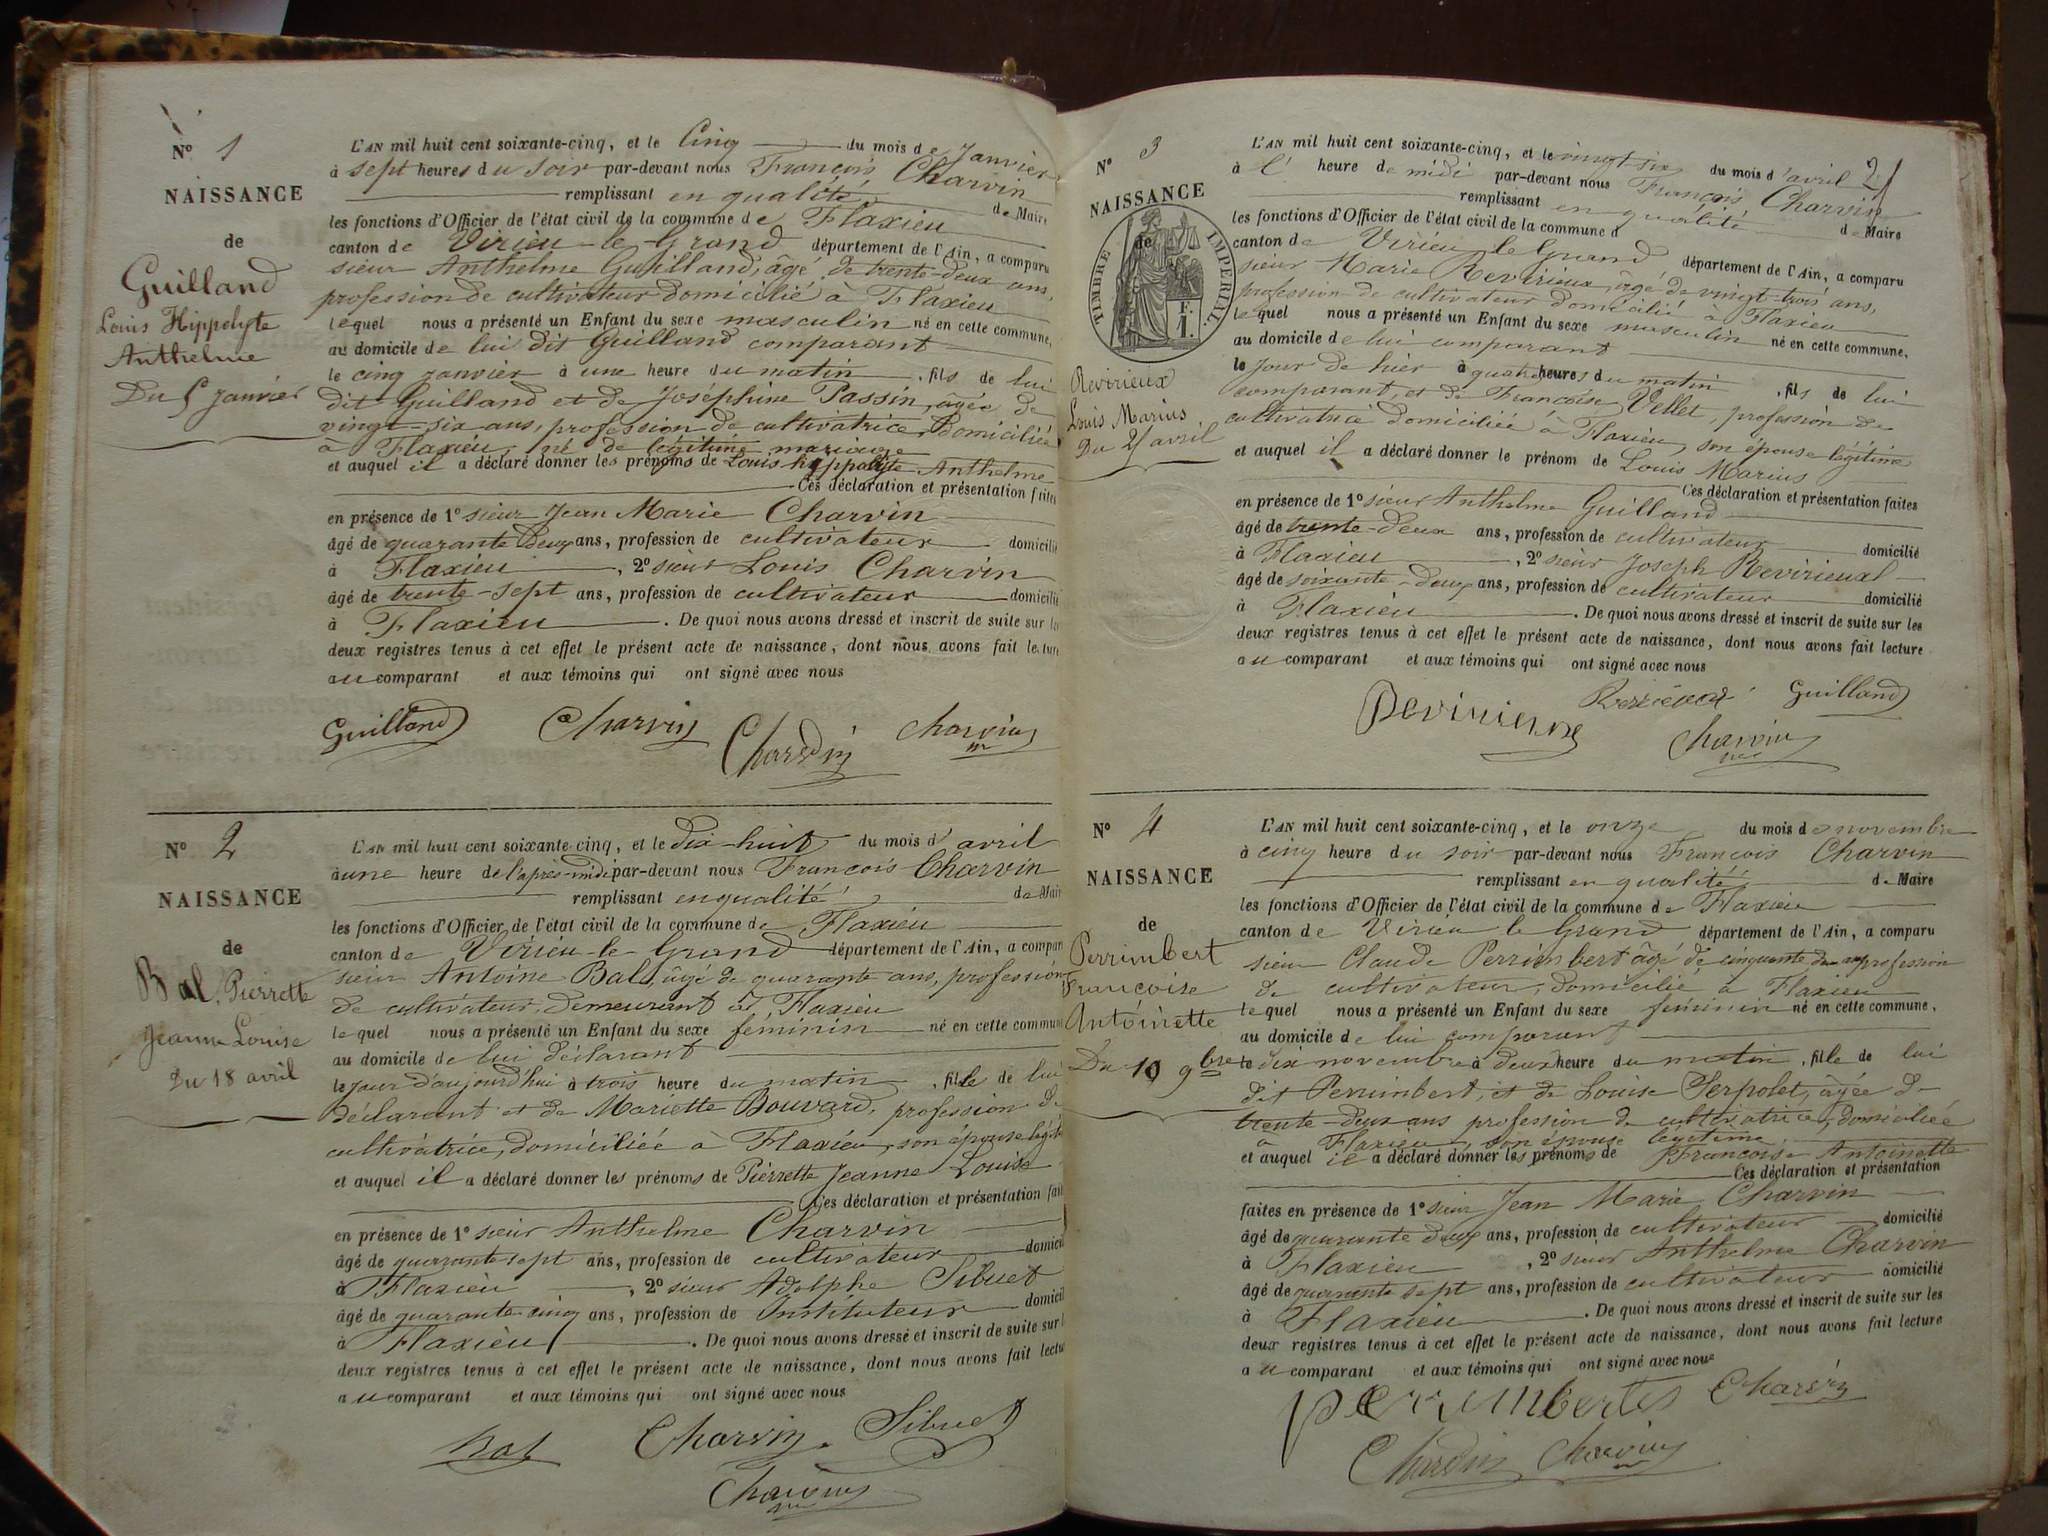 N° 1
NAISSANCE
de
Guilland
Louis Hippolyte
Anthelme
Du 5 Janvier
L'AN mil huit cent soixante-cinq, et le Cinq du mois de Janvier
à sept heures du soir par-devant nous François Charvin
remplissant en qualité de Maire
les fonctions d'Officier de l'état civil de la commune de Flaxieu
canton de Virieu-le-Grand département de l'Ain, a comparu
sieur Anthelme Guilland, âgé de trente-deux ans,
profession de cultivateur domicilié à Flaxieu
lequel nous a présenté un Enfant du sexe masculin né en cette commune,
au domicile de lui dit Guilland comparant
le cinq janvier à une heure du matin, fils de lui
dit Guilland et de Joséphine Passin, âgée de
vingt-six ans, profession de cultivatrice, domiciliée
à Flaxieu, né de légitime mariage
et auquel il a déclaré donner les prénoms de Louis hippolyte Anthelme
Ces déclaration et présentation faites
en présence de 1° sieur Jean Marie Charvin
âgé de quarante deux ans, profession de cultivateur domicilié
à Flaxieu, 2° sieur Louis Charvin
âgé de trente-sept ans, profession de cultivateur domicilié
à Flaxieu. De quoi nous avons dressé et inscrit de suite sur les
deux registres tenus à cet effet le présent acte de naissance, dont nous avons fait lecture
au comparant et aux témoins qui ont signé avec nous
Guilland Charvin Charvin Charvin
N° 2
NAISSANCE
de
Bal, Pierrette
Jeanne Louise
Du 18 avril
L'AN mil huit cent soixante-cinq, et le dix-huit du mois d'avril
à une heure de l'après-midi par-devant nous François Charvin
remplissant en qualité de Maire
les fonctions d'Officier de l'état civil de la commune de Flaxieu
canton de Virieu-le-Grand département de l'Ain, a comparu
sieur Antoine Bal, âgé de quarante ans, profession
de cultivateur, demeurant à Flaxieu
lequel nous a présenté un Enfant du sexe féminin né en cette commune
au domicile de lui déclarant
le jour d'aujourd'hui à trois heure du matin, fille de lui
déclarant et de Mariette Bouvard, profession de
cultivatrice, domiciliée à Flaxieu, son épouse légitime
et auquel il a déclaré donner les prénoms de Pierrette Jeanne Louise
Ces déclaration et présentation faites
en présence de 1° sieur Anthelme Charvin
âgé de quarante sept ans, profession de cultivateur domicilié
à Flaxieu, 2° sieur Adolphe Sibuet
âgé de quarante-cinq ans, profession de Instituteur domicilié
à Flaxieu. De quoi nous avons dressé et inscrit de suite sur les
deux registres tenus à cet effet le présent acte de naissance, dont nous avons fait lecture
au comparant et aux témoins qui ont signé avec nous
Bal Charvin Sibuet
Charvin
N° 3
NAISSANCE
de
TIMBRE IMPERIAL
1 F.
Revirieux
Louis Marius
Du 25 avril
2
L'AN mil huit cent soixante-cinq, et le vingt-six du mois d'avril
à l' heure de midi par-devant nous François Charvin
remplissant en qualité de Maire
les fonctions d'Officier de l'état civil de la commune d
canton de Virieu le Grand département de l'Ain, a comparu
sieur Marie Revirieux, âgé de vingt-trois ans,
profession de cultivateur domicilié à Flaxieu
lequel nous a présenté un Enfant du sexe masculin né en cette commune,
au domicile de lui comparant
le jour de hier à quatre heures du matin, fils de lui
comparant, et de Françoise Vellet, profession de
cultivatrice domiciliée à Flaxieu, son épouse légitime
et auquel il a déclaré donner le prénom de Louis Marius
Ces déclaration et présentation faites
en présence de 1° sieur Anthelme Guilland
âgé de trente-deux ans, profession de cultivateur domicilié
à Flaxieu, 2° sieur Joseph Revirieux
âgé de soixante-deux ans, profession de cultivateur domicilié
à Flaxieu. De quoi nous avons dressé et inscrit de suite sur les
deux registres tenus à cet effet le présent acte de naissance, dont nous avons fait lecture
au comparant et aux témoins qui ont signé avec nous
Guilland
Charvin
N° 4
NAISSANCE
de
Perrimbert
Françoise
Antoinette
Du 10 9bre
L'AN mil huit cent soixante-cinq, et le onze du mois de novembre
à cinq heure du soir par-devant nous François Charvin
remplissant en qualité de Maire
les fonctions d'Officier de l'état civil de la commune de Flaxieu
canton de Virieu le Grand département de l'Ain, a comparu
sieur Claude Perrimbert âgé de cinquante ans profession
de cultivateur, domicilié à Flaxieu
lequel nous a présenté un Enfant du sexe féminin né en cette commune,
au domicile de lui comparant
le dix novembre à deux heure du matin, fille de lui
dit Perrimbert, et de Louise Serpolet, âgée de
trente-deux ans profession de cultivatrice, domiciliée
à Flaxieu, son épouse légitime
et auquel il a déclaré donner les prénoms de Françoise Antoinette
Ces déclaration et présentation
faites en présence de 1° sieur Jean Marie Charvin
âgé de quarante deux ans, profession de cultivateur domicilié
à Flaxieu, 2° sieur Anthelme Charvin
âgé de quarante sept ans, profession de cultivateur domicilié
à Flaxieu. De quoi nous avons dressé et inscrit de suite sur les
deux registres tenus à cet effet le présent acte de naissance, dont nous avons fait lecture
au comparant et aux témoins qui ont signé avec nous
Perrimbertes Charvin
Charvin Charvin